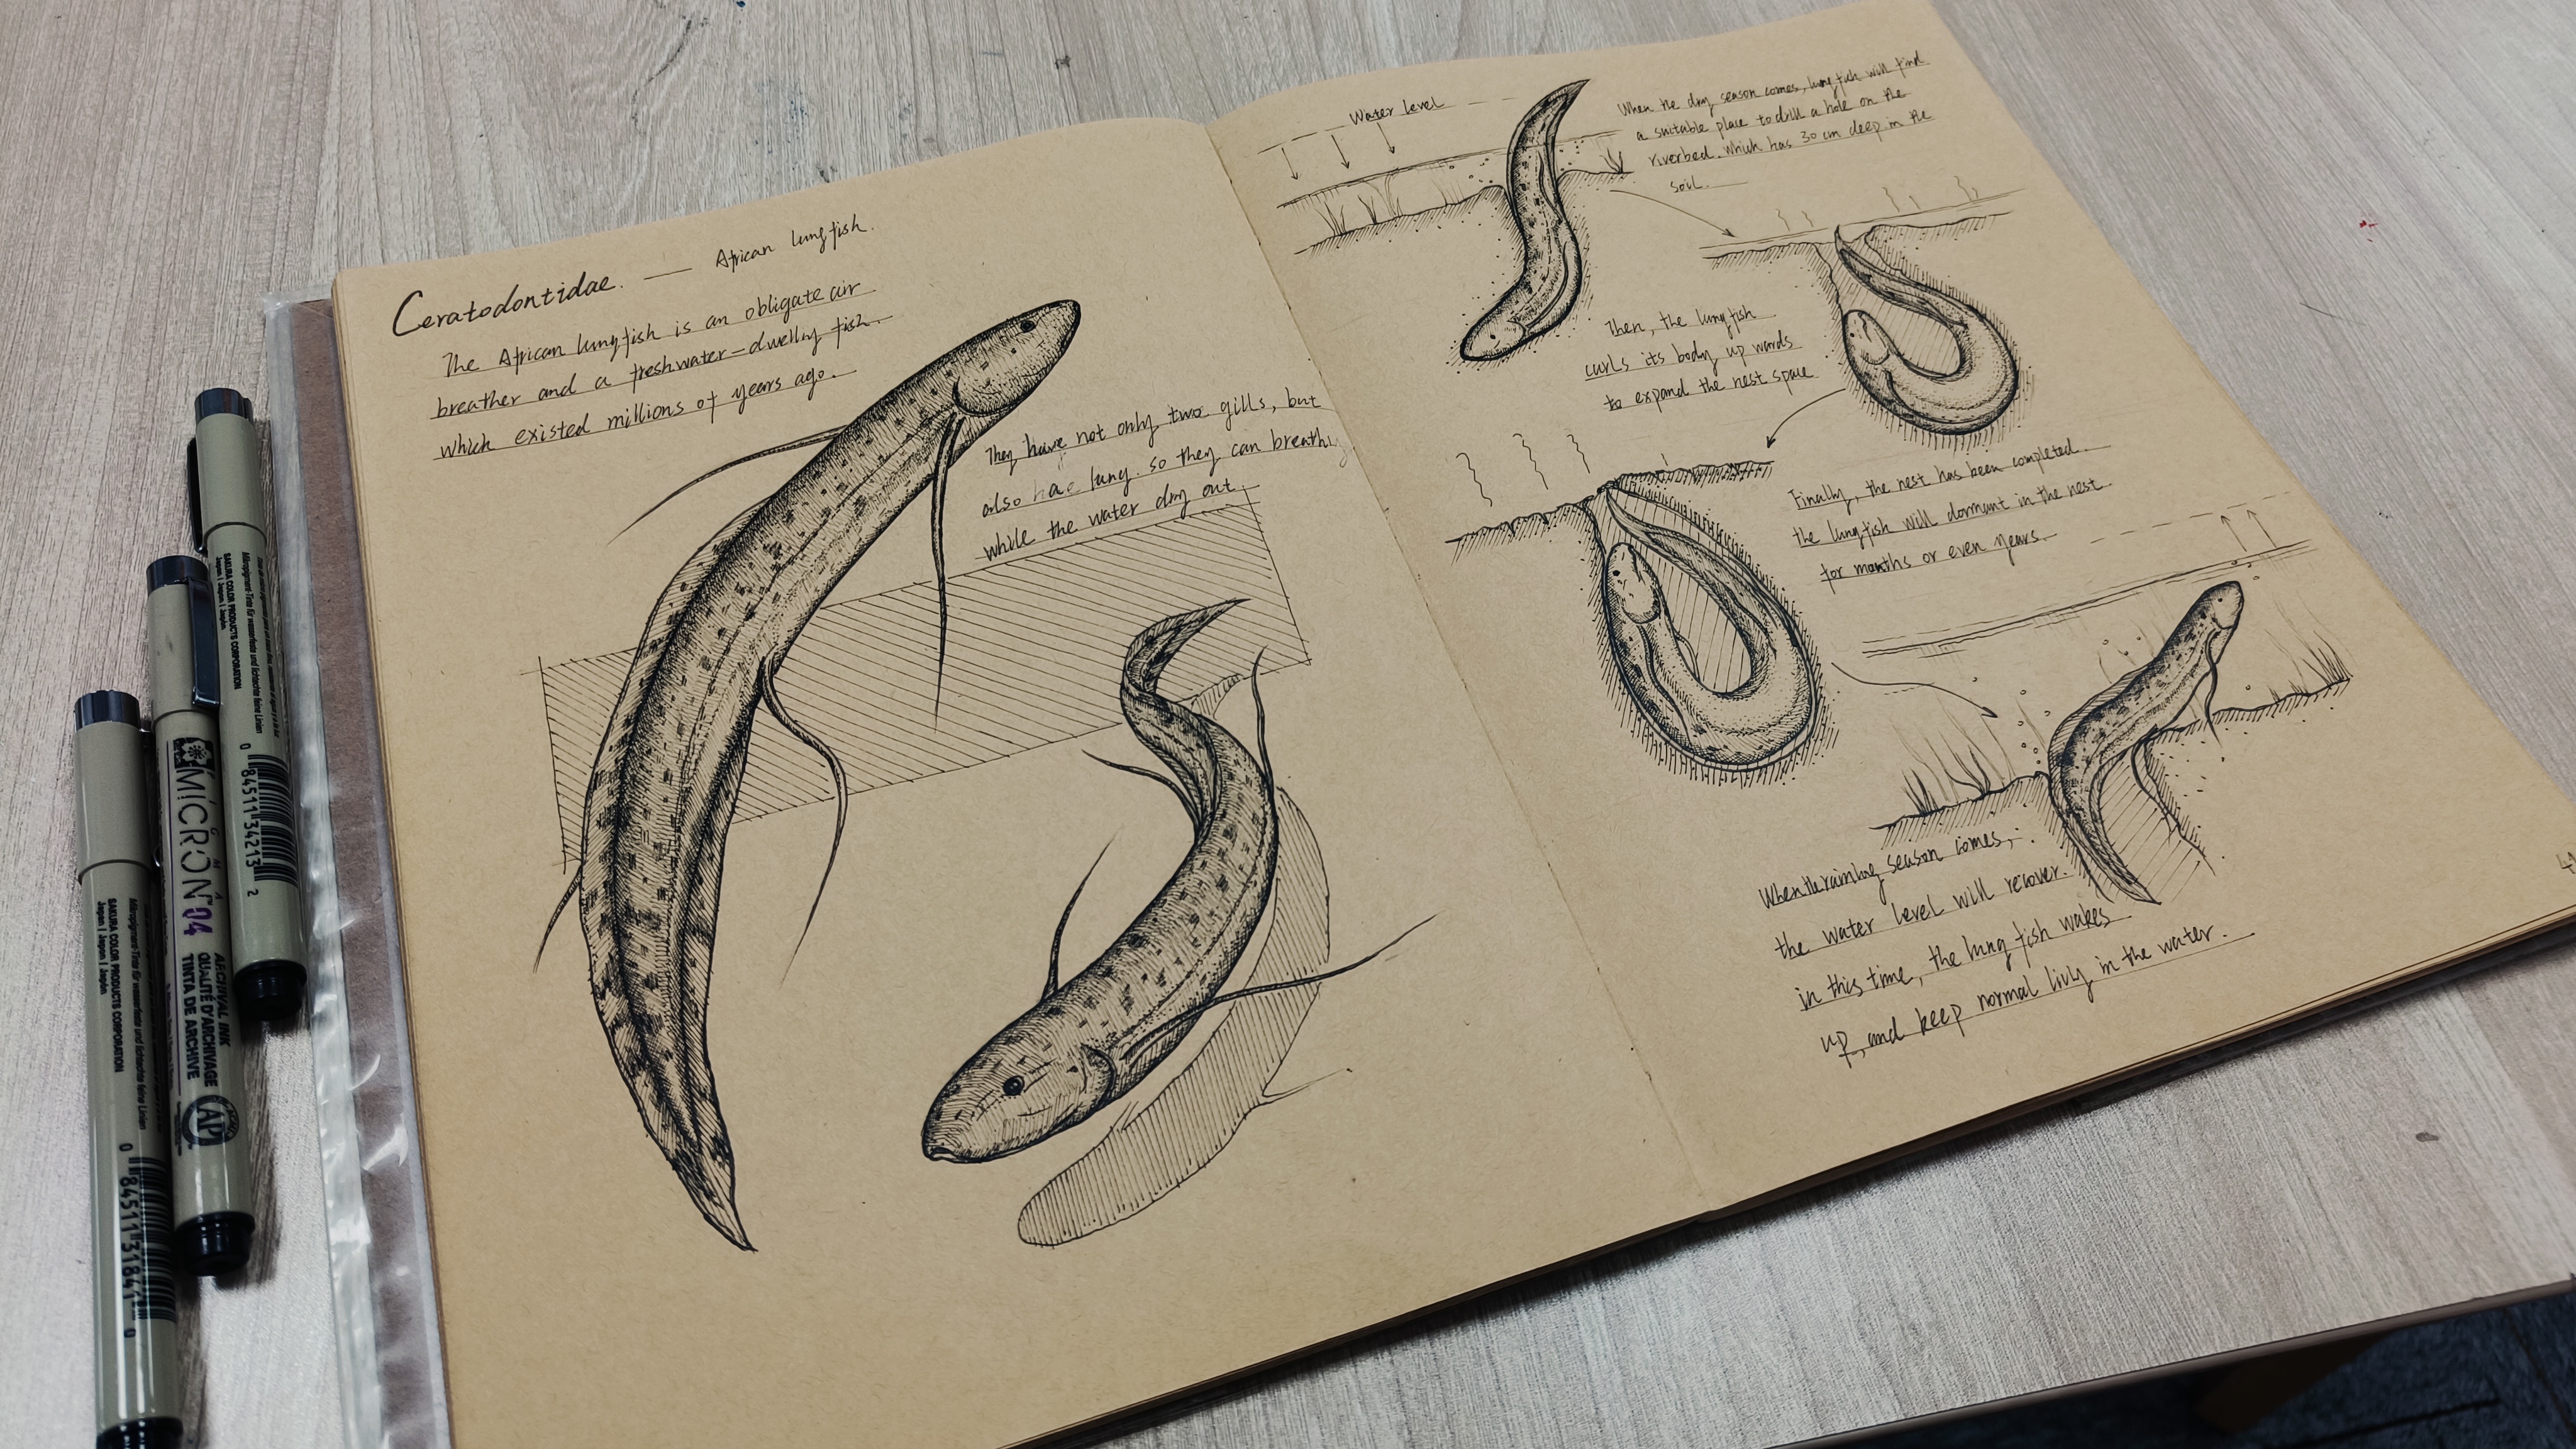 Ceratodontidae. — African lungfish.
The African lungfish is an obligate air
breather and a freshwater-dwelly fish.
which existed millions of years ago.
They have not only two gills, but
also hae lung. so they can breathly
while the water dry out.
Water level
When the dry season comes, lungfish will find
a suitable place to drill a hole on the
riverbed. which has 30 cm deep in the
soil.
Then, the lungfish
curls its body up wards
to expand the nest space
Finally, the nest has been completed.
the lungfish will dormant in the nest
for months or even years.
When the raining season comes,
the water level will recover.
in this time, the lung fish wakes
up, and keep normal livly in the water.
SAKURA COLOR PRODUCTS CORPORATION
Japan | Japon | Japón
0 84511 31841 0
MICRON 04
ARCHIVAL INK
QUALITÉ D'ARCHIVAGE
TINTA DE ARCHIVE
AP
SAKURA COLOR PRODUCTS CORPORATION
Japan | Japon | Japón
0 84511 34213 2